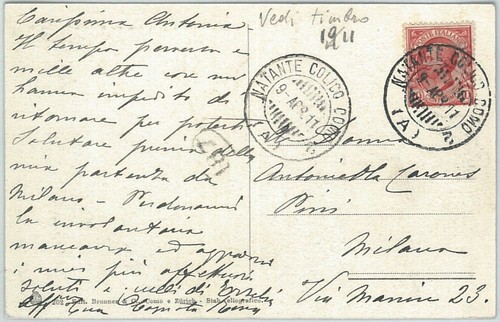 Carissima Antonia
Il tempo perverso e
mille altre cose mi
hanno impedito di
ritornare per poterti
salutare prima della
mia partenza da
Milano - Perdonami
la involontaria
mancanza ed aggradisci
i miei più affettuosi
saluti e quelli di
aff
Vedi timbro
1911
NATANTE COLICO COMO
9 APR 11
(A)
POSTE ITALIANE
NATANTE COLICO COMO
APR 11
(A)
Antonietta
Pini
Milano
Via Manin 23.
Brunner & C. Como e Zürich - Stab. eliografico.